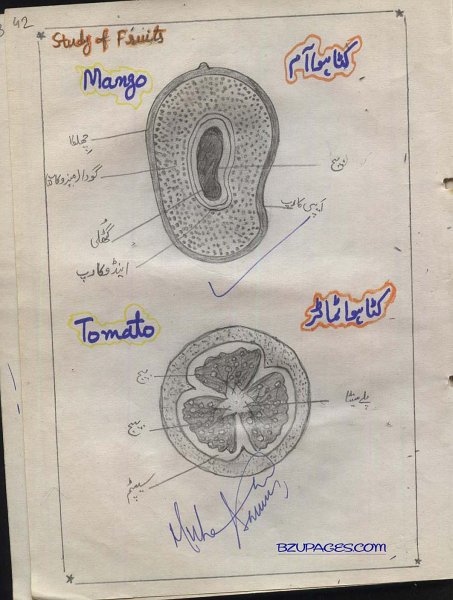 42
Study of Fruits
Mango
کٹا ہوا آم
چھلکا
گودا (میزوکارپ)
بیج
ایپی کارپ
گٹھلی
اینڈوکارپ
Tomato
کٹا ہوا ٹماٹر
بیج
پلے سینٹا
بیج
سیپٹم
BZUPAGES.COM